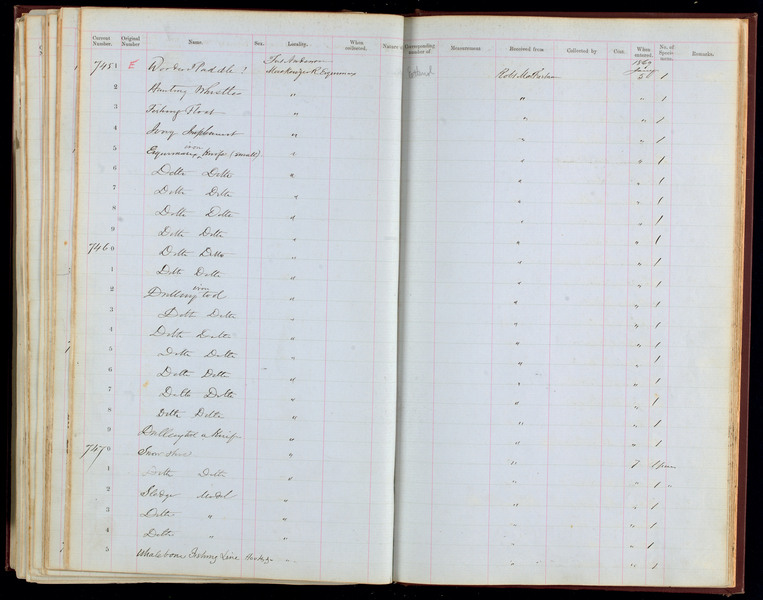 Current Number. Original Number Name. Sex. Locality. When collected. Nature of Corresponding number of Measurement Received from Collected by Cize. When entered. No. of Specimens. Remarks.
1869
7451 E Wooden Paddle ? Fort Anderson Mackenzie R. Esquimaux Robt MacFarlane Jany 5 1
2 Hunting Whistle " " " 1
3 Fishing Float " " " 1
4 Ivory Implement " " " 1
5 Esquimaux iron Knife (small) " " " 1
6 Ditto Ditto " " " 1
7 Ditto Ditto " " " 1
8 Ditto Ditto " " " 1
9 Ditto Ditto " " " 1
7460 Ditto Ditto " " " 1
1 Ditto Ditto " " " 1
2 Drilling iron tool " " " 1
3 Ditto Ditto " " " 1
4 Ditto Ditto " " " 1
5 Ditto Ditto " " " 1
6 Ditto Ditto " " " 1
7 Ditto Ditto " " " 1
8 Ditto Ditto " " " 1
9 Drilling tool or Knife " " " 1
7470 Snow shoe " " 7 1 pair
1 Ditto Ditto " " " 1 "
2 Sledge Model " " " 1
3 Ditto " " " " 1
4 Ditto " " " " 1
5 Whalebone Fishing Line " " " 1